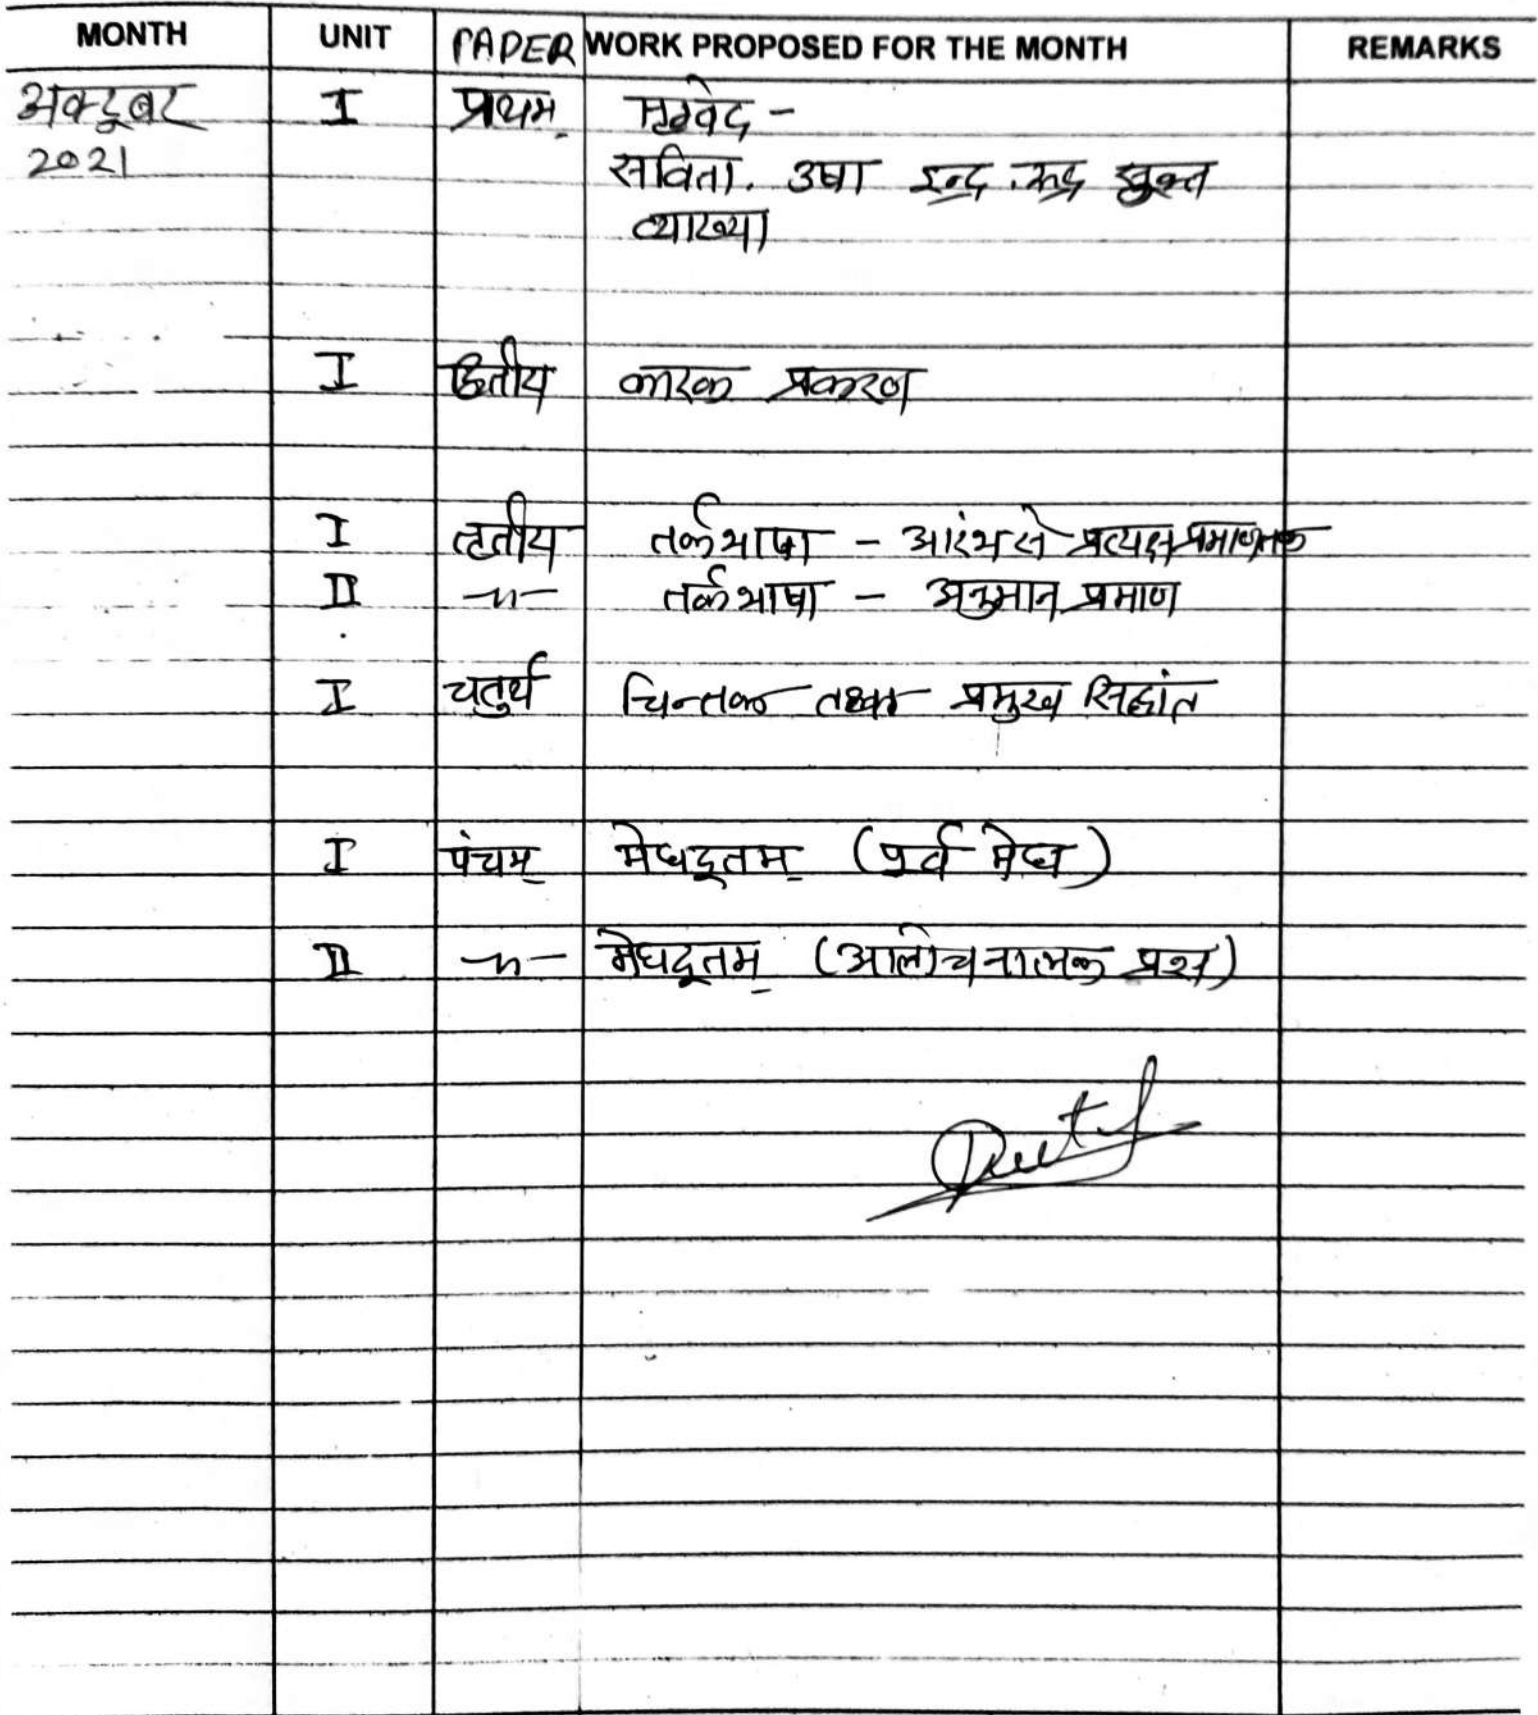 MONTH UNIT PAPER WORK PROPOSED FOR THE MONTH REMARKS
अक्टूबर I प्रथम् ऋग्वेद -
2021 सविता. उषा इन्द्र. रूद्र सूक्त
व्याख्या
I द्वितीय कारक प्रकरण
I तृतीय तर्कभाषा - आरंभ से प्रत्यक्ष प्रमाण तक
II -〃- तर्कभाषा - अनुमान प्रमाण
I चतुर्थ चिन्तक तथा प्रमुख सिद्धांत
I पंचम् मेघदूतम् (पूर्व मेघ)
II -〃- मेघदूतम् (आलोचनात्मक प्रश्न)